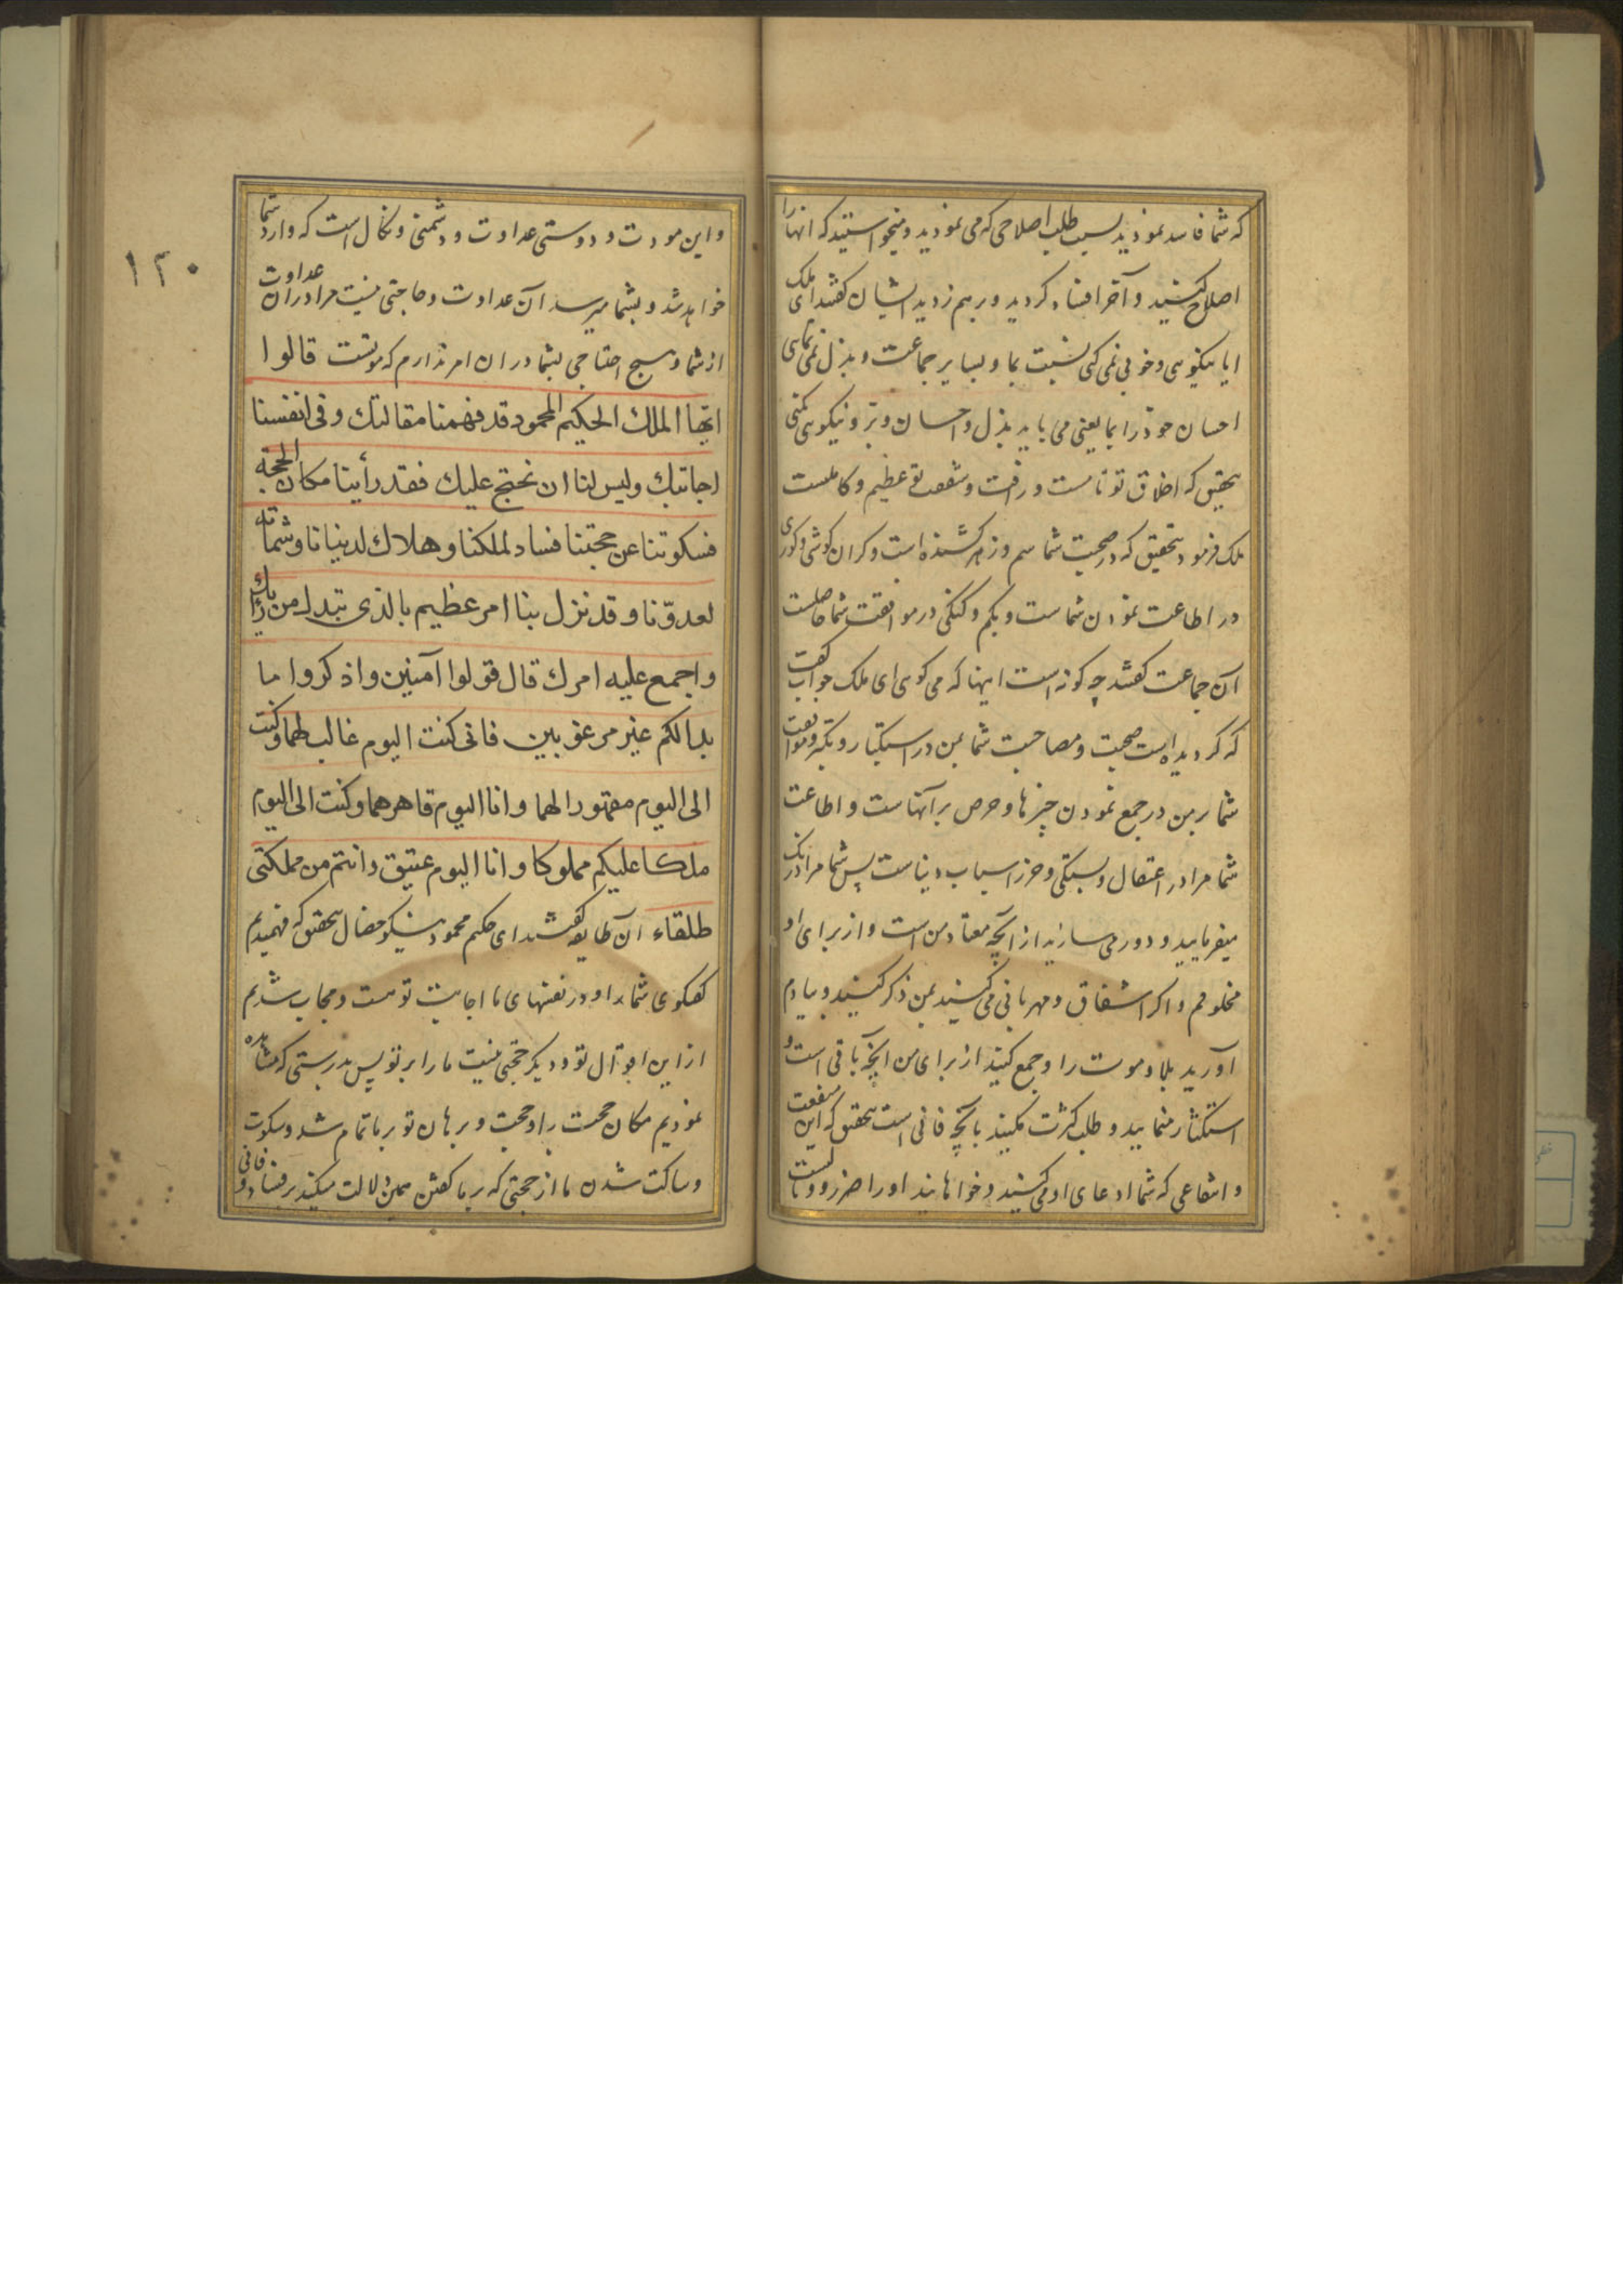 که شما فاسد نمودید بسبب طلب اصلاحی که می نمودید و میخواستید که آنها را
اصلاح کنید و آخر افساد کردید و برهم زدید ایشان گفتند ای ملک
ایا نیکویی و خوبی نمی کنی نسبت بما و بسایر جماعت و بذل نمی نمایی
احسان خود را بما یعنی می باید بذل و احسان و بر و نیکویی کنی
بتحقیق که اخلاق تو تامست و رافت و شفقت تو عظیم و کاملست
ملک فرمود بتحقیق که در صحبت شما سم و زهر کشنده است و کران کوشی و کوری
در اطاعت نمودن شماست و بکم و کنکی در موافقت شما حاصلست
آن جماعت گفتند چه کونه است اینها که می کویی ای ملک جواب گفت
که کردیده است صحبت و مصاحبت شما بمن در استکبار و تکبر و موافقت
شما بمن در جمع نمودن چیزها و حرص بر آنهاست و اطاعت
شما مرا در اعتقال و بستکی و حرز اسباب دنیاست پس شما مرا
میفرمایید و دور می سازید از آنچه معتاد من است و از برای او
مخلوقم و اکر اشفاق و مهربانی می کنید بمن ذکر کنید و بیادم
آورید بلا و موت را و جمع کنید از برای من آنچه باقی است و
استکثار منمایید و طلب کثرت مکنید بآنچه فانی است بتحقیق که این منفعت
و انتفاعی که شما ادعای او می کنید و خواهانید او را ضرر و
و این مودت و دوستی عداوت و دشمنی و نکال است که وارد شما
خواهد شد و بشما میرسد آن عداوت و حاجتی نیست مرا در ان عداوت
از شما و هیچ احتیاجی بشما در ان امر ندارم که موتست قالوا
ایها الملك الحکیم المحمود قد فهمنا مقالتك و فی انفسنا
اجابتك ولیس لنا ان نحتج علیك فقد رأینا مکان الحجة
فسکوتنا عن حجتنا فساد لملکنا و هلاك لدنیانا و شماتة
لعدوّنا و قد نزل بنا امر عظیم بالذی تبدل من رأیك
و اجمع علیه امرك قال قولوا آمنین و اذکروا ما
بدالکم غیر مرعوبین فانی کنت الیوم غالب لهما و کنت
الی الیوم مقهورا لهما و انا الیوم قاهرهما و کنت الی الیوم
ملکا علیکم مملوکا و انا الیوم عتیق و انتم من مملکتی
طلقاء آن طایفه گفتند ای حکیم محمود نیکو خصال بتحقیق که فهمیدیم
گفتکوی شما را و در نفسهای ما اجابت تو هست و مجاب شدیم
از این اقوال تو و دیکر حجتی نیست ما را بر تو پس بدرستی که مشاهده
نمودیم مکان حجت را و حجت و برهان تو بر ما تمام شد و سکوت
و ساکت شدن ما از حجتی که بر ما گفتن دلالت میکند بر فساد و فانی
۱۲۰